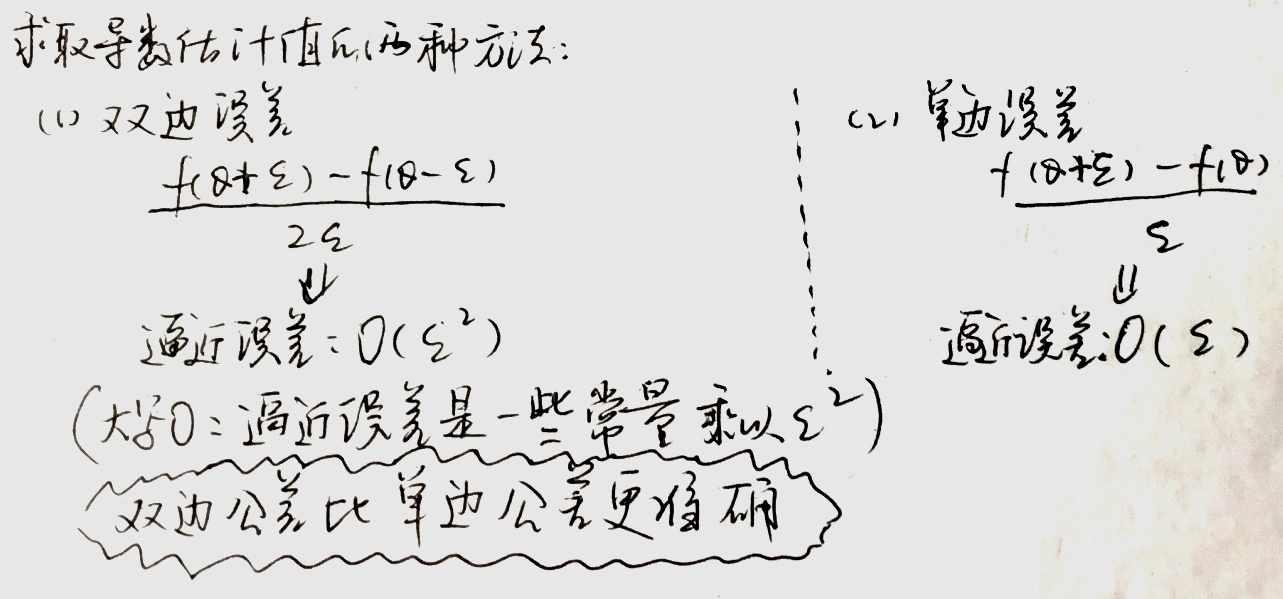 求取导数估计值的两种方法:
(1) 双边误差
f(θ+ε)-f(θ-ε)
2ε
⇓
逼近误差:O(ε²)
(大写O:逼近误差是一些常量乘以ε²)
双边公差比单边公差更准确
(2) 单边误差
f(θ+ε)-f(θ)
ε
⇓
逼近误差:O(ε)